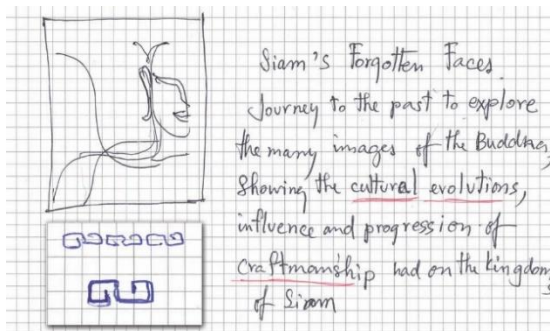 Siam's Forgotten Faces
Journey to the past to explore
the many images of the Buddha,
Showing the cultural evolutions,
influence and progression of
Craftmanship had on the kingdom
of Siam